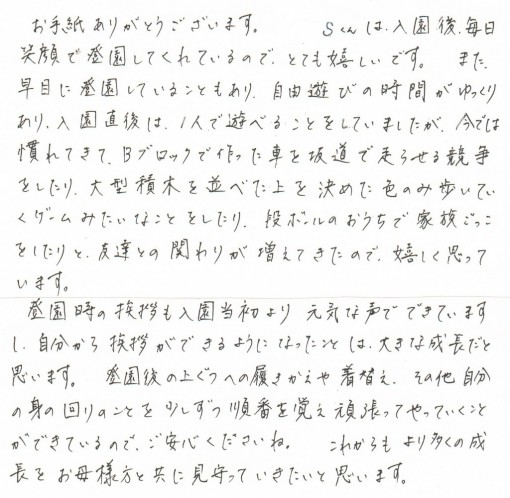 お手紙ありがとうございます。 Sくんは、入園後、毎日
笑顔で登園してくれているので、とても嬉しいです。 また、
早目に登園していることもあり、自由遊びの時間がゆっくり
あり、入園直後は、1人で遊べることをしていましたが、今では
慣れてきて、Bブロックで作った車を坂道で走らせる競争
をしたり、大型積木を並べた上を決めた色のみ歩いてい
くゲームみたいなことをしたり、段ボールのおうちで家族ごっこ
をしたりと、友達との関わりが増えてきたので、嬉しく思って
います。
登園時の挨拶も入園当初より元気な声でできています
し、自分から挨拶ができるようになったことは、大きな成長だと
思います。 登園後の上ぐつへの履きかえや着替え、その他自分
の身の回りのことを少しずつ順番を覚え頑張ってやっていくこと
ができているので、ご安心くださいね。 これからもより多くの成
長をお母様方と共に見守っていきたいと思います。